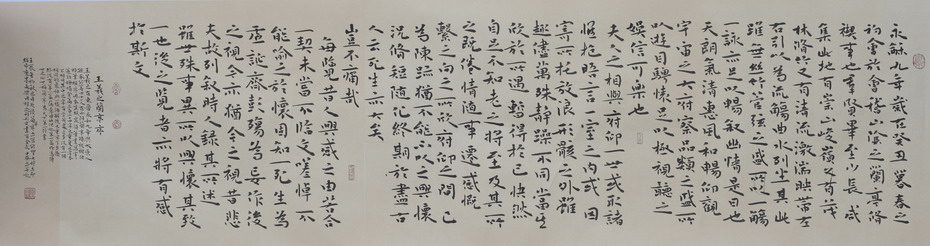 永和九年歲在癸丑暮春之
初會於會稽山陰之蘭亭脩
禊事也羣賢畢至少長咸
集此地有崇山峻嶺又有茂
林脩竹又有清流激湍映帶左
右引以為流觴曲水列坐其次
雖無絲竹管弦之盛所以一觴
一詠亦足以暢叙幽情是日也
天朗氣清惠風和暢仰觀
宇宙之大俯察品類之盛所
以遊目騁懷足以極視聽之
娛信可樂也
夫人之相與俯仰一世或取諸
懷抱晤言一室之内或因
寄所託放浪形骸之外雖
趣舍萬殊靜躁不同當其
欣於所遇暫得於己快然
自足不知老之將至及其所
之既倦情隨事遷感慨
繫之向之所欣俯仰之間已
為陳跡猶不能不以之興懷
況脩短隨化終期於盡古
人云死生亦大矣
豈不痛哉
每覽昔人興感之由若合
一契未嘗不臨文嗟悼不
能喻之於懷固知一死生為
虛誕齊彭殤為妄作後
之視今亦猶今之視昔悲
夫故列叙時人錄其所述
雖世殊事異所以興懷其致
一也後之覽者亦將有感
於斯文
王羲之蘭亭序